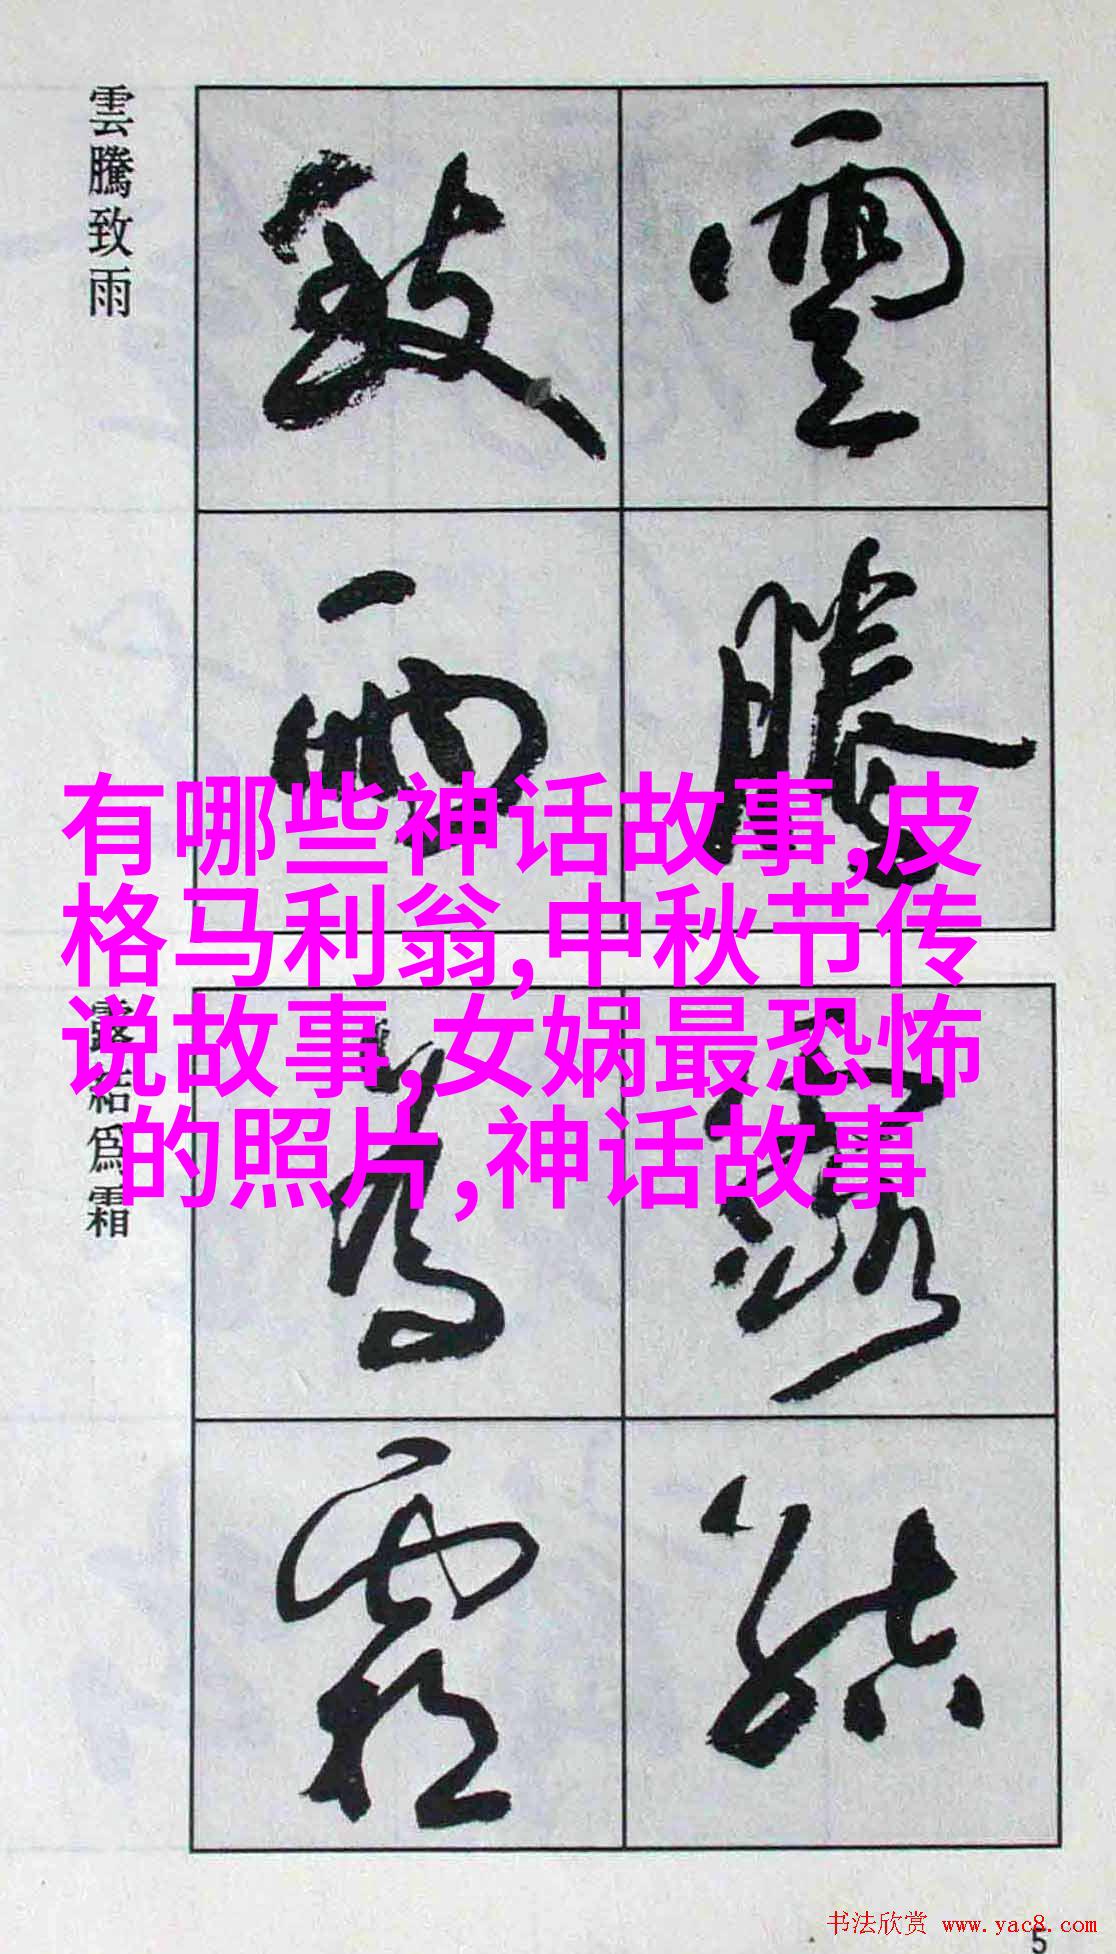 雲騰致雨
雲
騰
致
雨
有哪些神话故事,皮
格马利翁,中秋节传
说故事,女娲最恐怖
的照片,神话故事
露結為霜
露
結
為
霜
书法欣赏 www.yac8.com
5